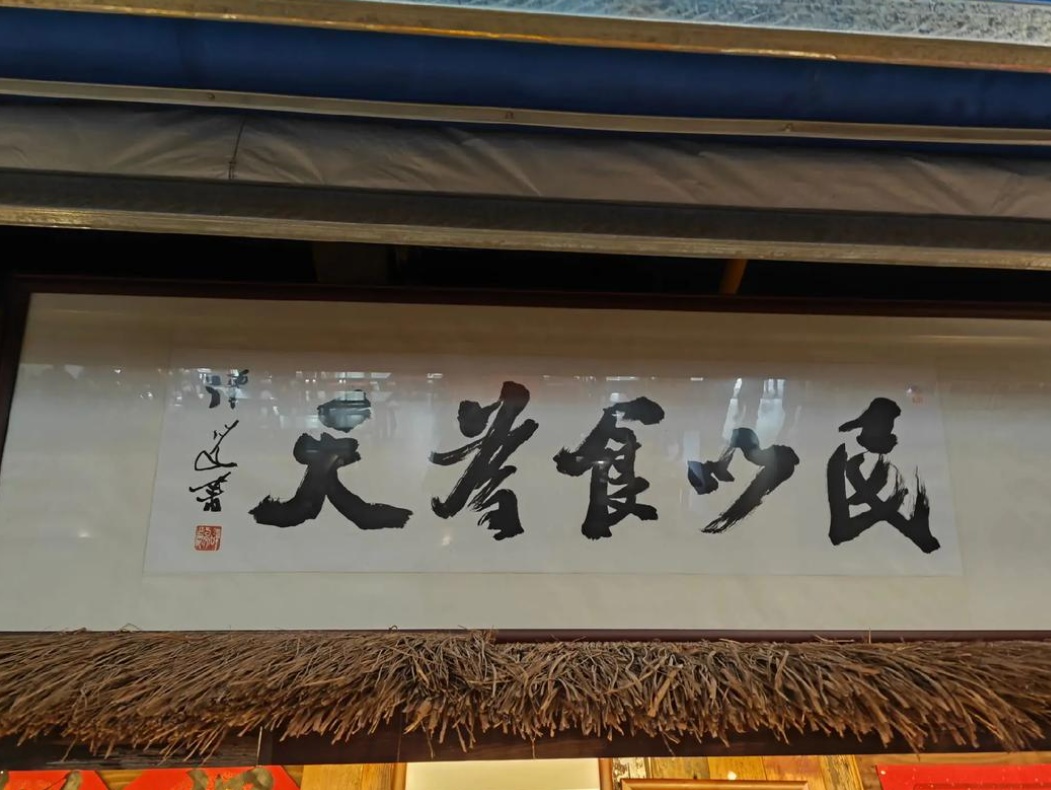 民以食為天